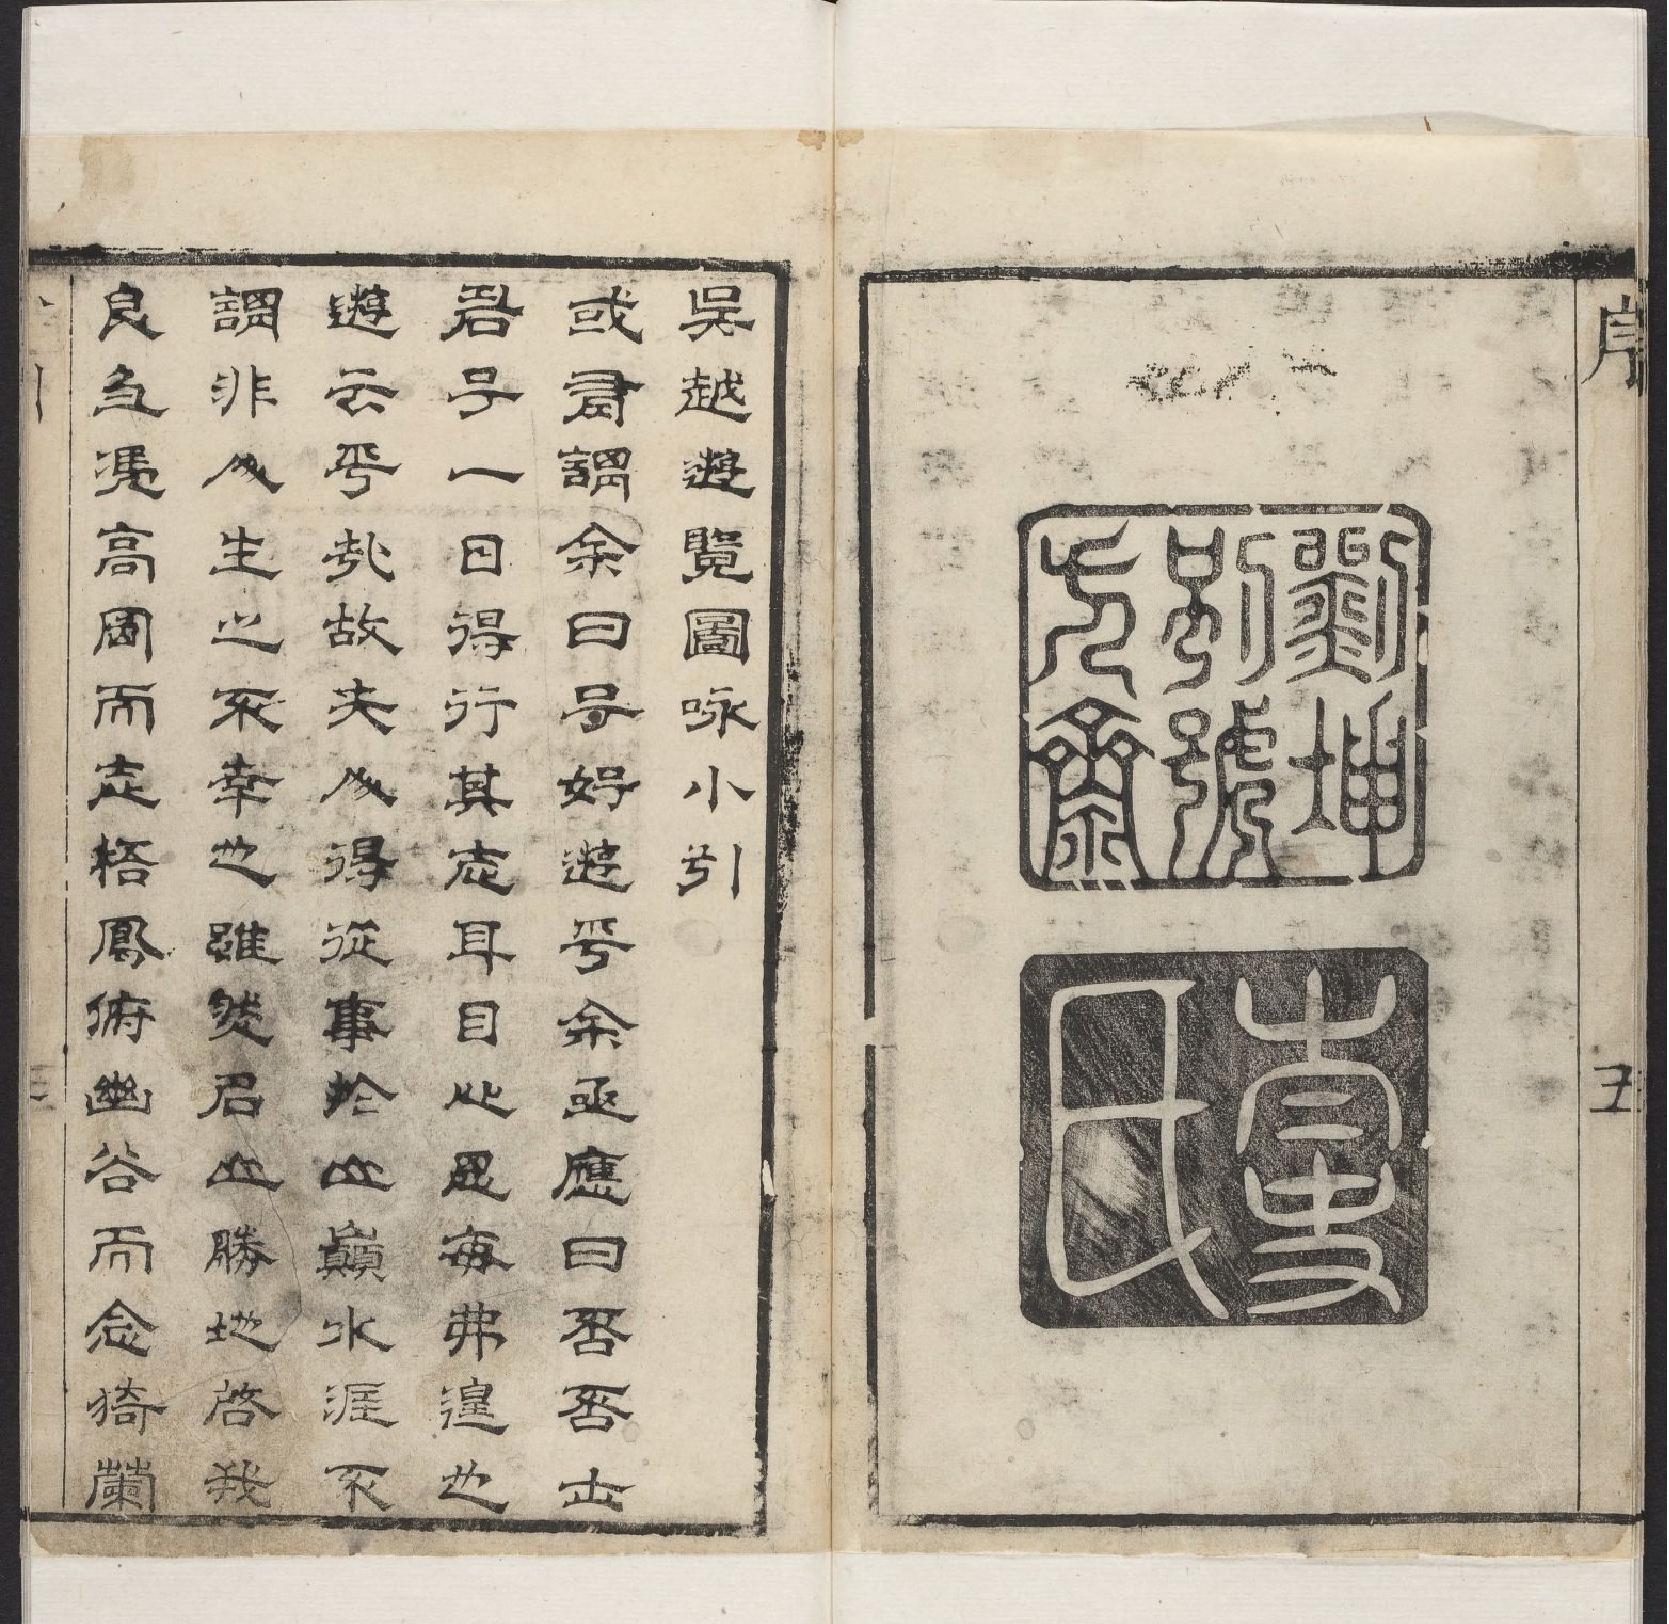 序
五
劉坤
別號
齋
氏
吳越遊覽圖咏小引
或有謂余曰子好遊乎余亟應曰否否士
君子一日得行其志耳目心思每弗遑也
遊云乎哉故夫人得從事於山巔水涯不
謂非人生之不幸也雖然名山勝地啓我
良多憑高岡而志梧鳳俯幽谷而念猗蘭